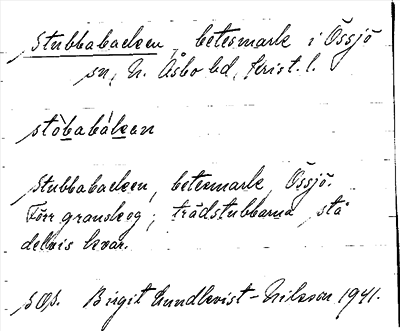 Stubbabacken, betesmark i Össjö
sn, N. Åsbo hd, Krist. l.
stòbabákan
Stubbabacken, betesmark, Össjö.
Förr granskog; trädstubbarna stå
delvis kvar.
s Op. Birgit Lundkvist-Nilsson 1941.